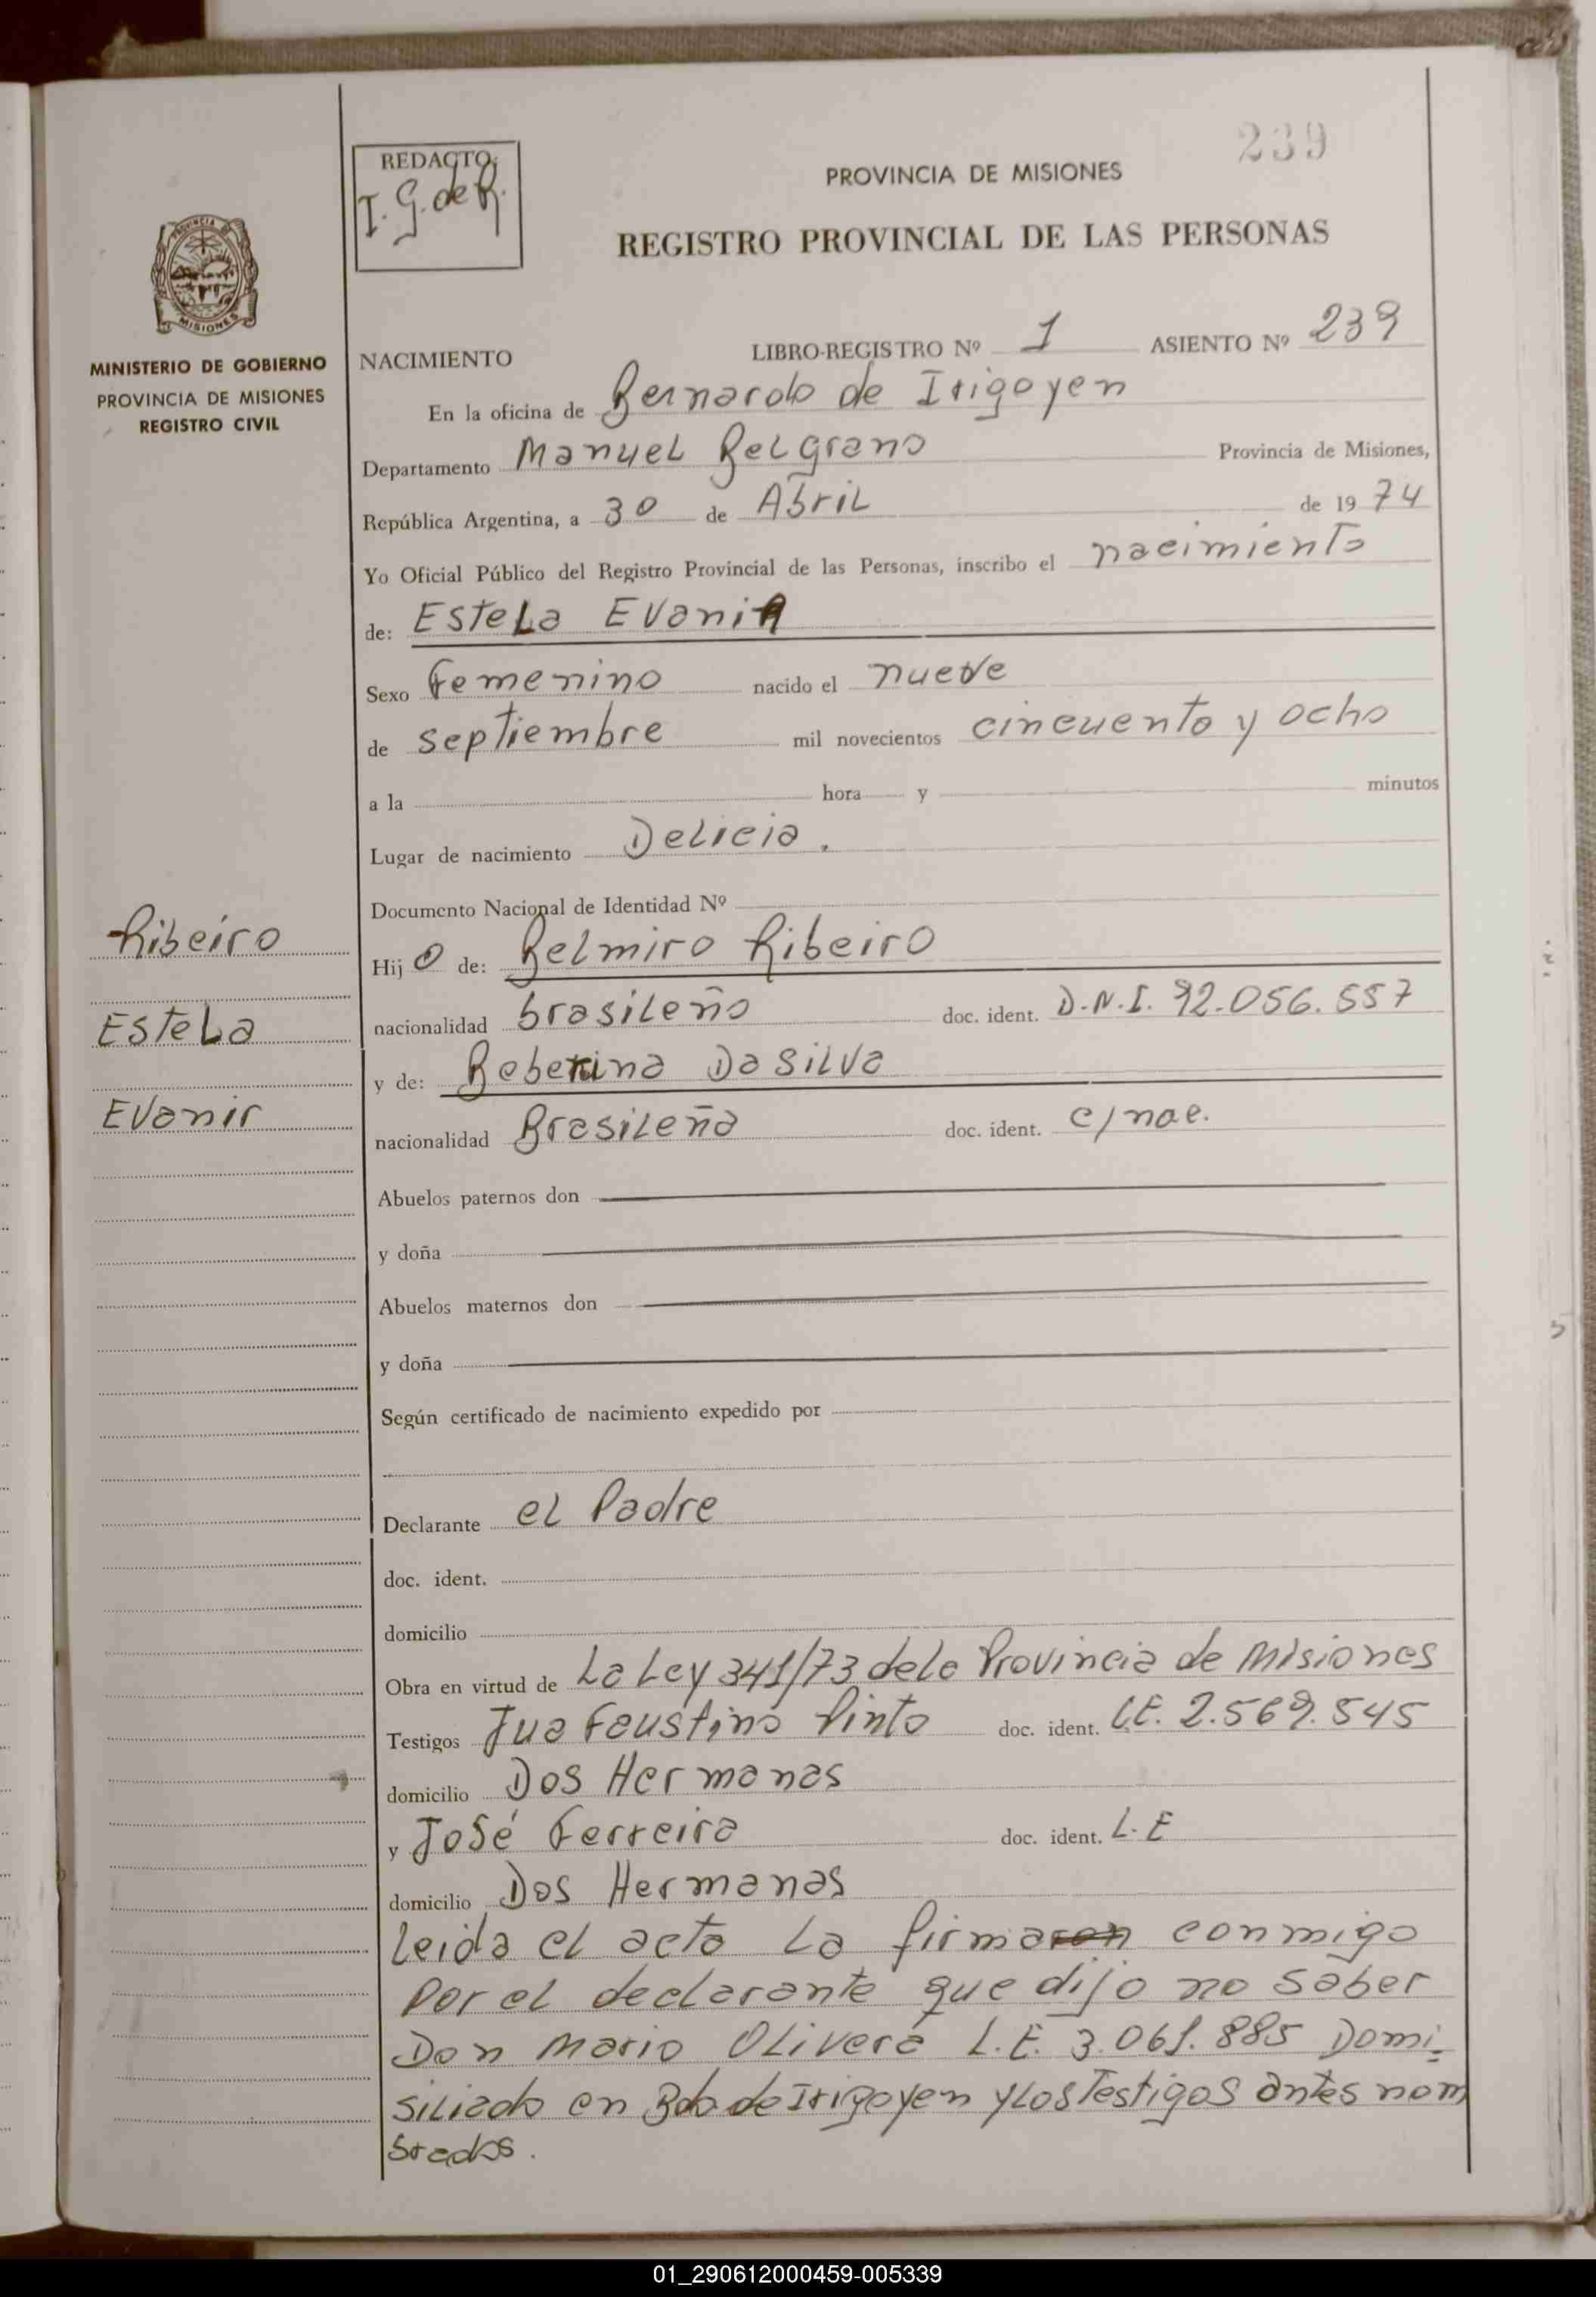 239
REDACTO:
I. G. de R.
PROVINCIA DE MISIONES
REGISTRO PROVINCIAL DE LAS PERSONAS
MISIONES
MINISTERIO DE GOBIERNO
PROVINCIA DE MISIONES
REGISTRO CIVIL
NACIMIENTO LIBRO-REGISTRO Nº 1 ASIENTO Nº 239
En la oficina de Bernardo de Irigoyen
Departamento Manuel Belgrano Provincia de Misiones,
República Argentina, a 30 de Abril de 19 74
Yo Oficial Público del Registro Provincial de las Personas, inscribo el nacimiento
de: Estela Evanir
Sexo Femenino nacido el nueve
de septiembre mil novecientos cincuenta y ocho
a la hora y minutos
Lugar de nacimiento Delicia.
Documento Nacional de Identidad Nº
Ribeiro
Hij o de: Belmiro Ribeiro
Estela
nacionalidad brasileño doc. ident. D.N.I. 92.056.557
y de: Beberina Da Silva
Evanir
nacionalidad Brasileña doc. ident. c/nac.
Abuelos paternos don
y doña
Abuelos maternos don
y doña
Según certificado de nacimiento expedido por
Declarante el Padre
doc. ident.
domicilio
Obra en virtud de La Ley 341/73 de la Provincia de Misiones
Testigos Jua Faustino Pinto doc. ident. L.E. 2.569.545
domicilio Dos Hermanas
y José Ferreira doc. ident. L.E
domicilio Dos Hermanas
Leida el acta La firmaron conmigo
Por el declarante que dijo no saber
Don Mario Olivera L.E. 3.061.885 Domi-
siliado en Bdo de Irigoyen y Los Testigos antes nom
brados.
01_290612000459-005339